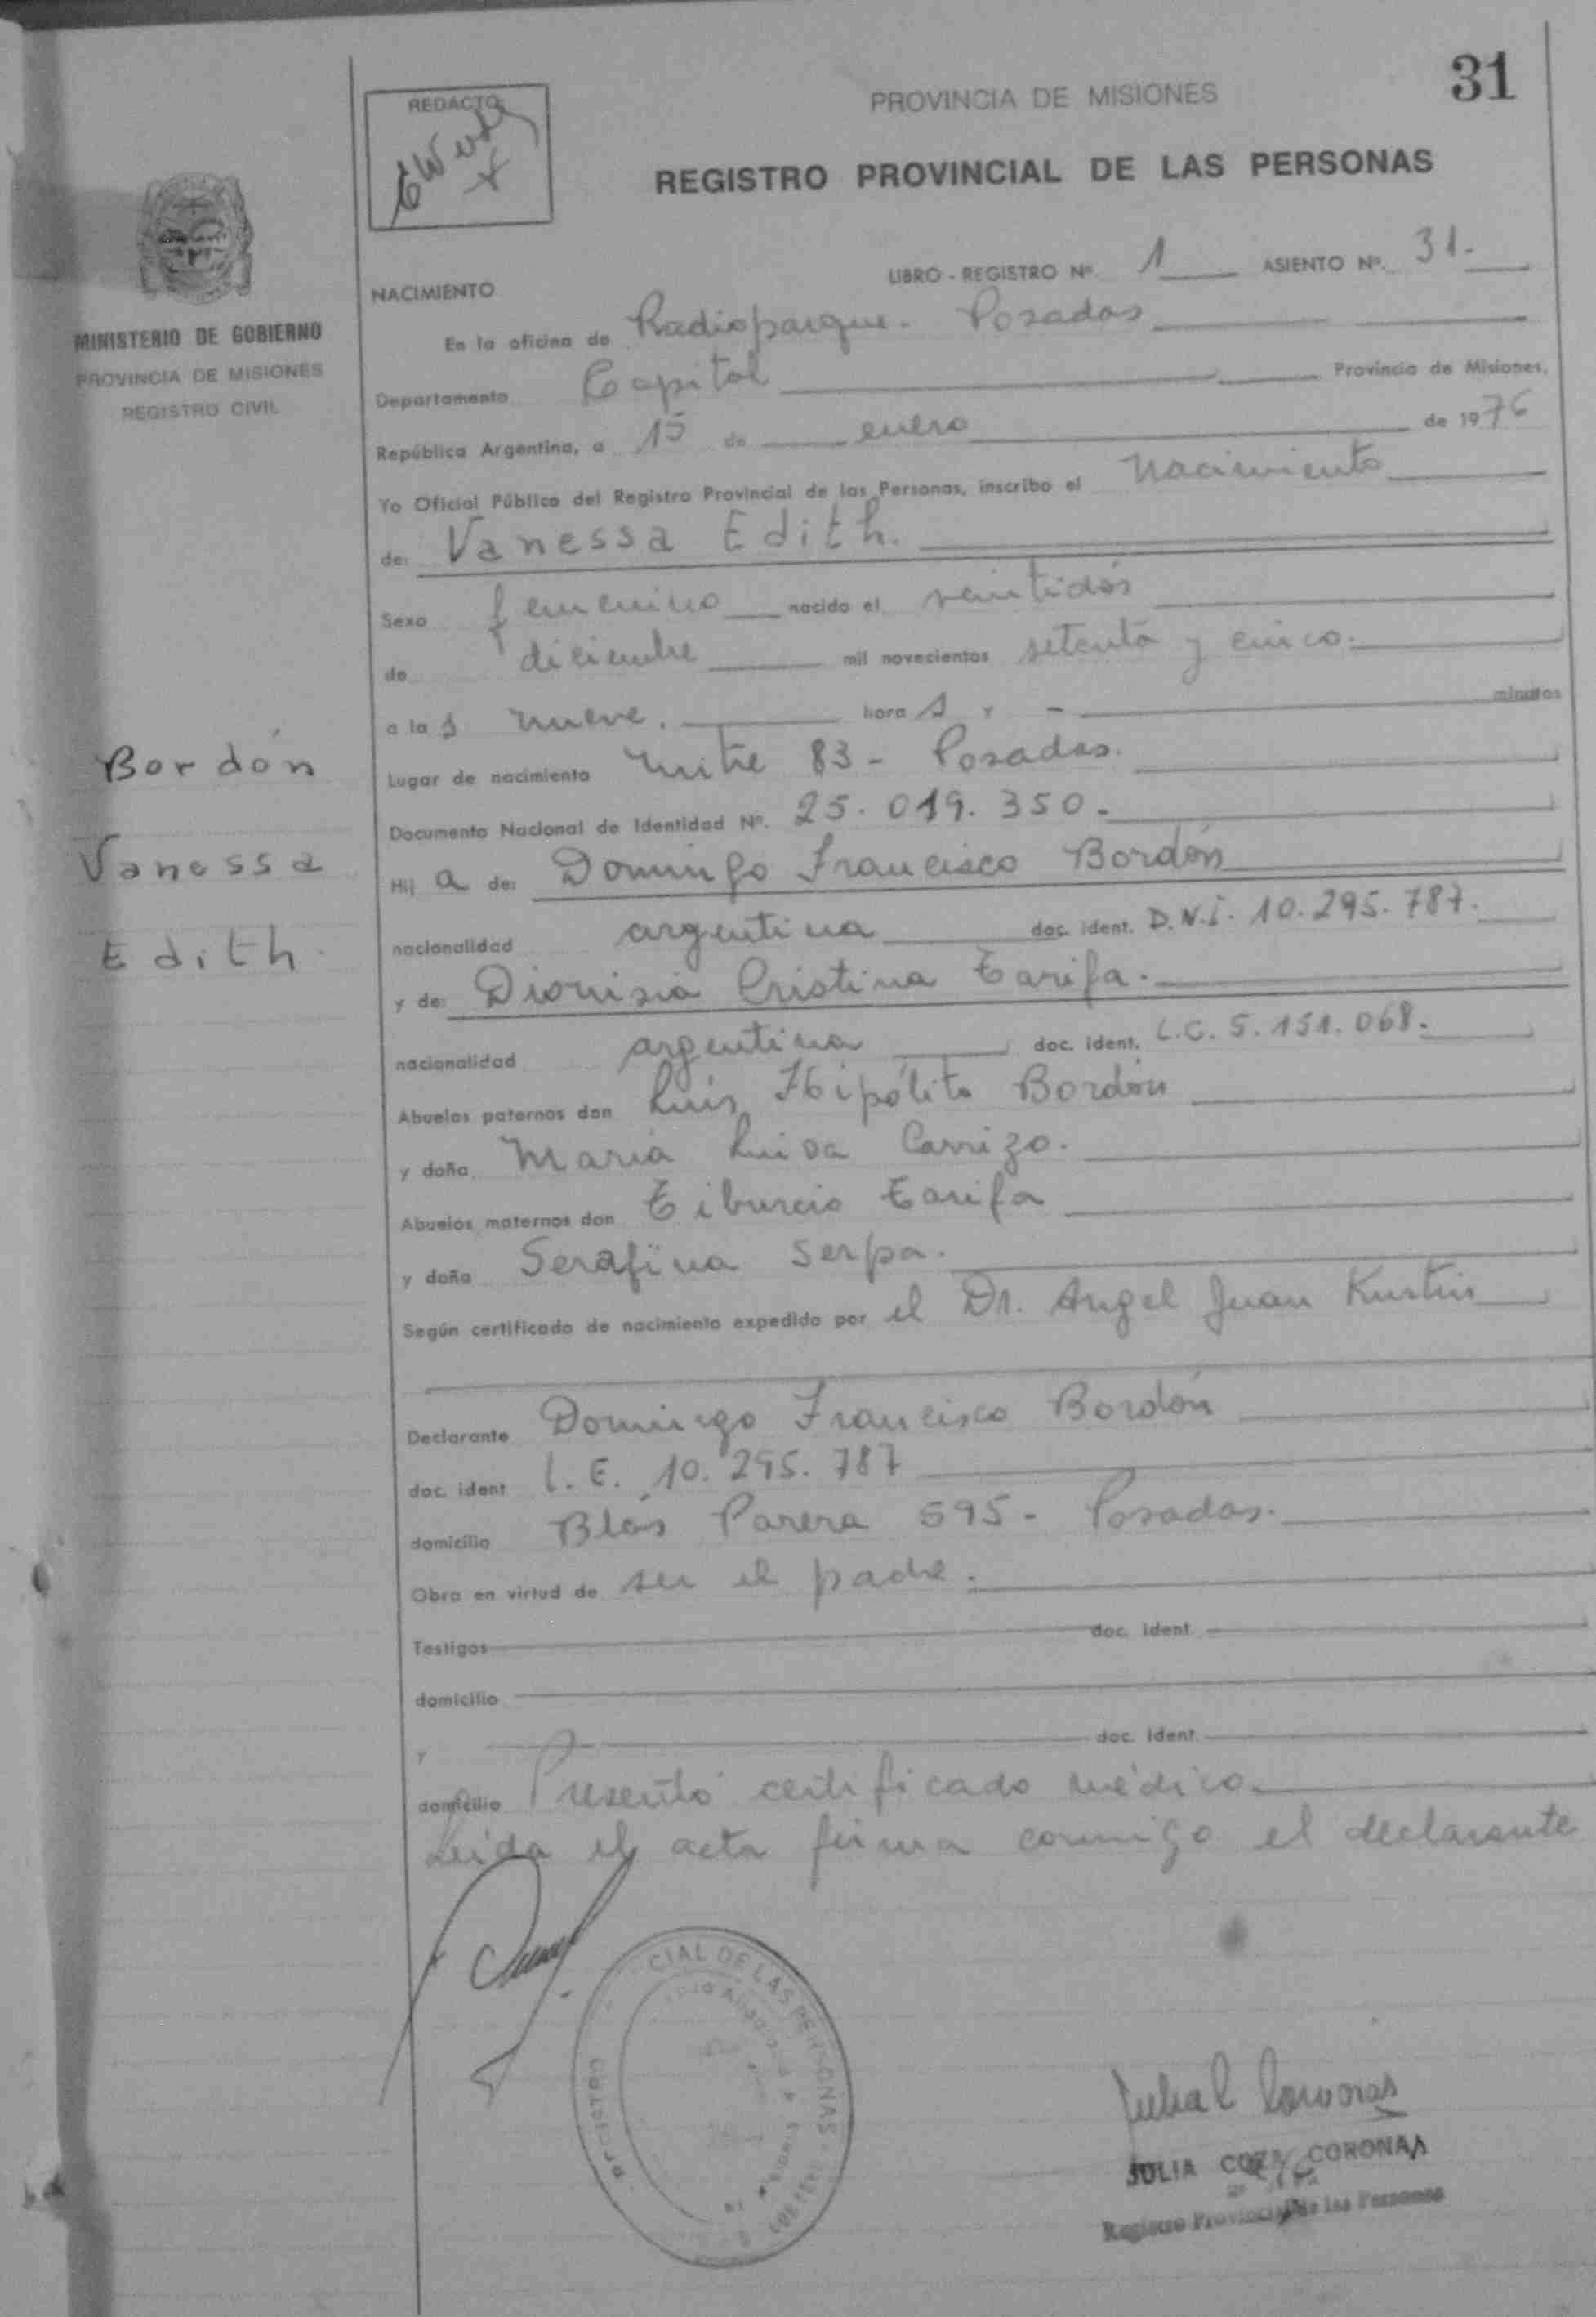 31
PROVINCIA DE MISIONES
REDACTO
REGISTRO PROVINCIAL DE LAS PERSONAS
MINISTERIO DE GOBIERNO
PROVINCIA DE MISIONES
REGISTRO CIVIL
LIBRO - REGISTRO Nº. 1 ASIENTO Nº. 31.-
NACIMIENTO
En la oficina de Radioparque. Posadas
Departamento Capital Provincia de Misiones,
República Argentina, a 15 de enero de 1976
Yo Oficial Público del Registro Provincial de las Personas, inscribo el nacimiento
de: Vanessa Edith.
Sexo femenino nacido el veintidós
de diciembre mil novecientos setenta y cinco.
a las nueve. horas y - minutos
Lugar de nacimiento Mitre 83 - Posadas.
Documento Nacional de Identidad Nº. 25.019.350.-
Bordón
Vanessa
Edith.
Hija de: Domingo Francisco Bordón
nacionalidad argentina doc. ident. D.N.I. 10.295.787.
y de: Dionisia Cristina Tarifa.
nacionalidad argentina doc. ident. L.C. 5.151.068.
Abuelos paternos don Luis Hipólito Bordón
y doña María Luisa Carrizo.
Abuelos maternos don Tiburcio Tarifa
y doña Serafina Serpa.
Según certificado de nacimiento expedido por el Dr. Angel Juan Kustin
Declarante Domingo Francisco Bordón
doc. ident L.E. 10.295.787
domicilio Blás Parera 595 - Posadas.
Obra en virtud de ser el padre.
Testigos doc. ident
domicilio
y doc. ident.
domicilio Presentó certificado médico.
Leida el acta firma conmigo el declarante
CIAL DE LAS PERSONAS
Julia C Coronas
JULIA CORONAS
Registro Provincial de las Personas